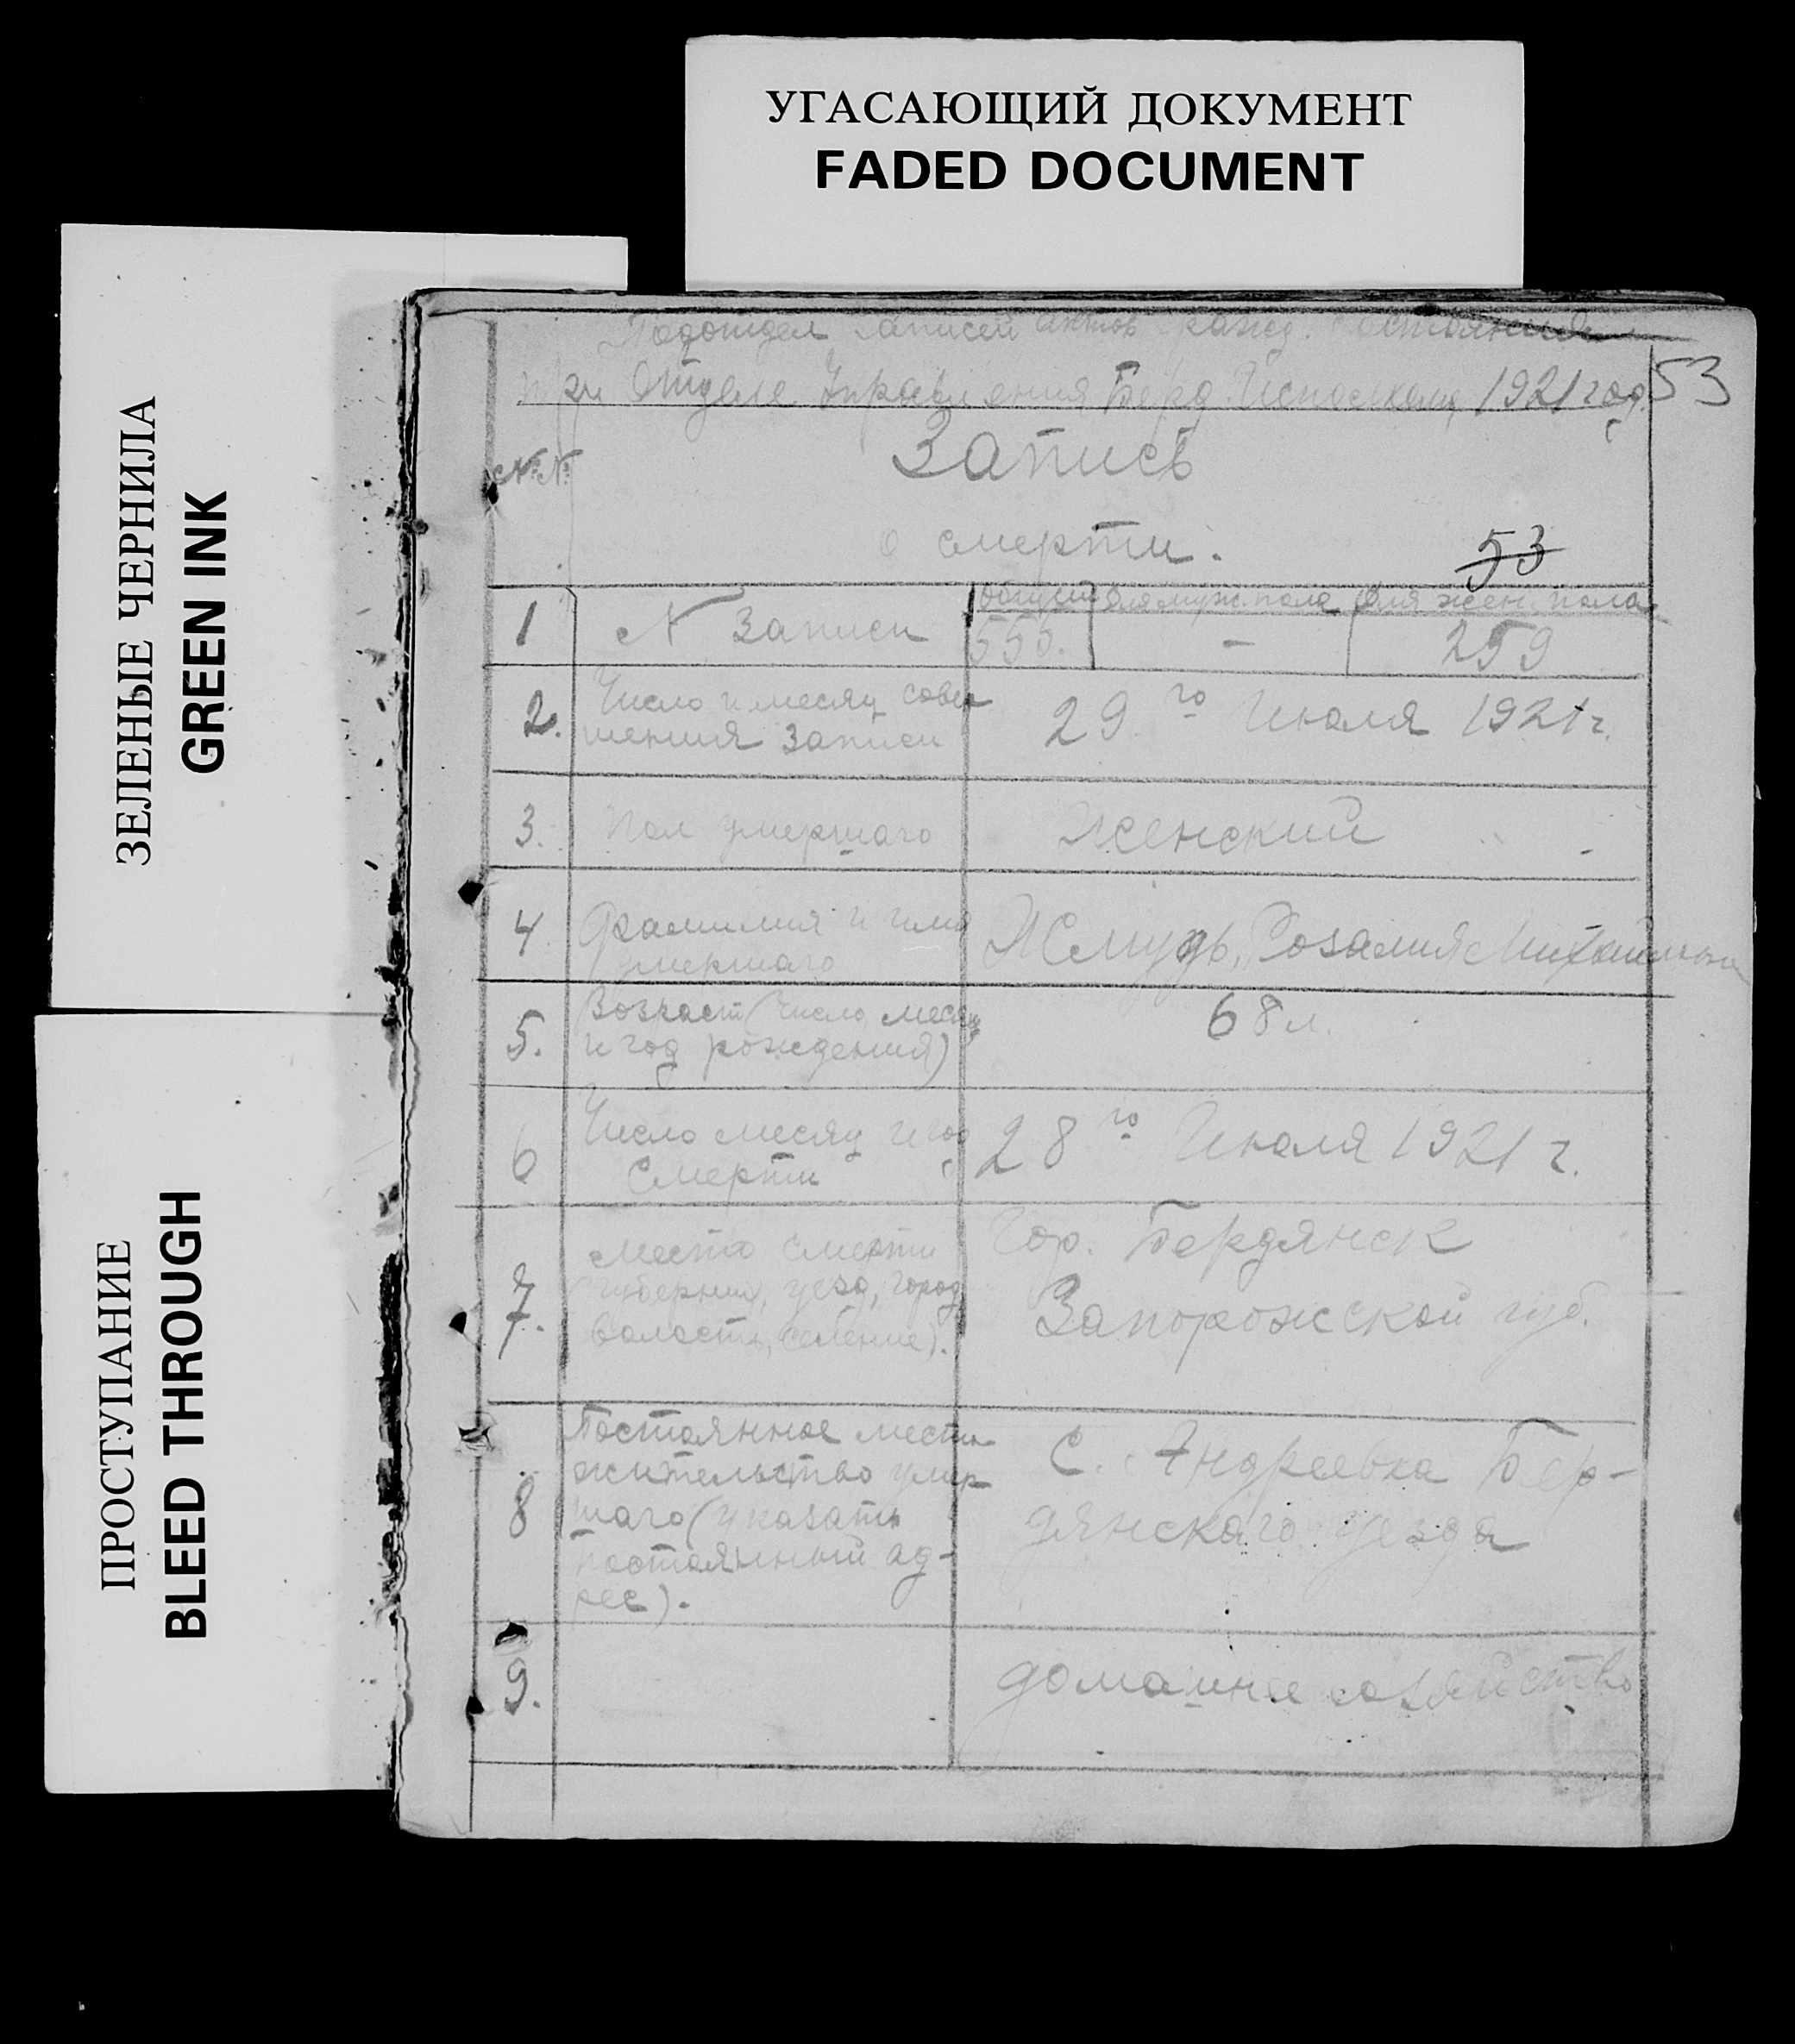 УГАСАЮЩИЙ ДОКУМЕНТ
FADED DOCUMENT
ЗЕЛЕНЫЕ ЧЕРНИЛА
GREEN INK
ПРОСТУПАНИЕ
BLEED THROUGH
Подотдел записей актов гражд. состояния
при Отделе Управления Берд. Исполкома 1921 год.
53
№№
Запись
о смерти.
53
общий для муж. пола для жен. пола
1 N Записи - 259
2. Число и месяц совер
шения записи 29го Июля 1921 г.
3. Пол умершаго Женский
4. Фамилия и имя
умершаго Жмудь, Розалия Михайловна
5. Возраст (число, месяц
и год рождения) 68 л.
6 Число месяц и год
Смерти 28го Июля 1921 г.
7. Место смерти
(губерния, уезд, город,
волость, селение).
Гор. Бердянск
Запорожской губ.
8 Постоянное место
жительство умер
шаго (указать
постоянный ад-
рес).
С. Андреевка Бер-
дянскаго уезда
9. домашнее хозяйство